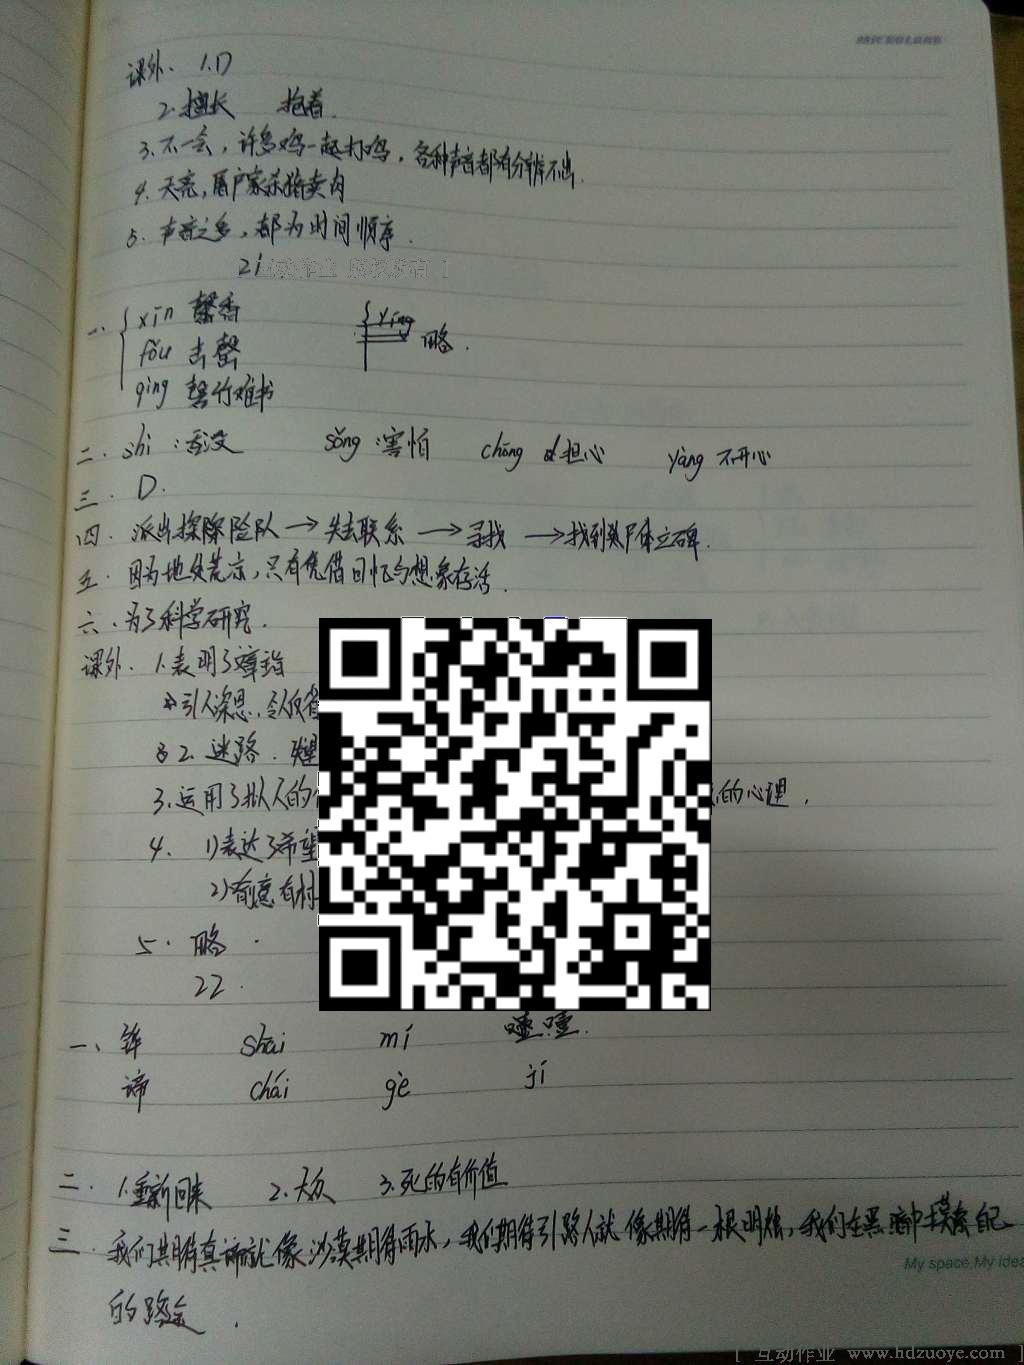 课外、 1.D
2.擅长 抱着.
3.不一会，许多鸡一起打鸣，各种声音都有分辨不出.
4.天亮，屠户家开始卖肉
5.声音之多，都为时间顺序.
21 互动作业 版权所有 ]
一、 xīn 馨香 yíng
fǒu 击罄 略.
qìng 罄竹难书
二. shì:吞没 sǒng:害怕 chōng 担心 yàng 不开心
三. D.
四. 派出探险队→失去联系→寻找→找到尸体立碑.
五. 因为地处荒凉,只有凭借回忆与想象存活.
六.为了科学研究.
课外. 1.表明了
引人深思.令人
2.迷路.
3.运用了拟人的 的心理.
4. 1)表达了希望
2)有
5.略.
22.
一、 shāi mí 噎噎.
谛 chái gè jí
二. 1.重新回来 2.大众 3.死的有价值
三. 我们期待真谛就像沙漠期待雨水,我们期待引路人就像期待一根明烛,我们在黑暗中摸索自己
的路途.
My space,My idea
[ 互动作业 www.hdzuoye.com ]